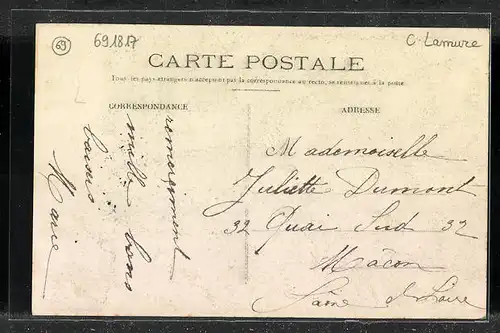 69
691817
C. Lamure
CARTE POSTALE
Tous les pays étrangers n'acceptent pas la correspondance au recto, se renseigner à la poste
CORRESPONDANCE
ADRESSE
remerciment
mille bons
baisers
Marie
Mademoiselle
Juliette Dumont
32 Quai Sud 32
Mâcon
Saône & Loire